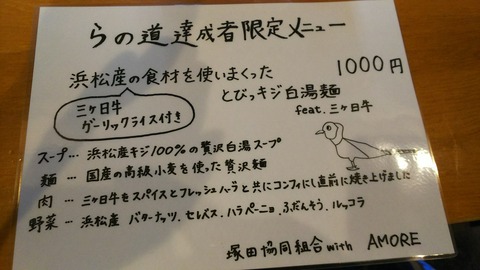 らの道達成者限定メニュー
浜松産の食材を使いまくった
1000円
とびっキジ白湯麺
feat. 三ヶ日牛
三ヶ日牛
ガーリックライス付き
スープ… 浜松産キジ100%の贅沢白湯スープ
麺 … 国産の高級小麦を使った贅沢麺
肉 … 三ヶ日牛をスパイスとフレッシュハーブと共にコンフィにし直前に焼き上げました
野菜… 浜松産 バターナッツ、セレベス、ハラペーニョ、ふだんそう、ルッコラ
塚田協同組合 with AMORE